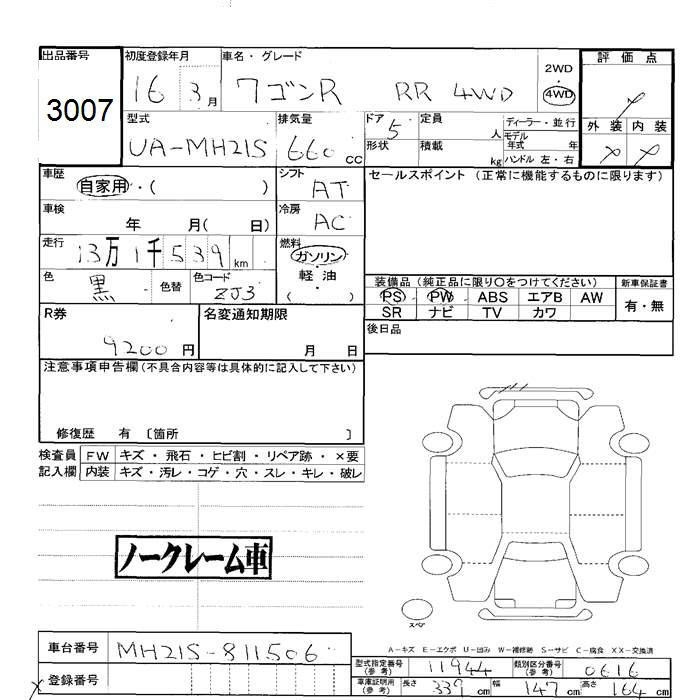 出品番号 初度登録年月 車名・グレード 2WD・4WD 評価点
3007 16 3月 ワゴンR RR 4WD
型式 排気量 ドア 5 定員 人 ディーラー・並行 外装 内装
UA-MH21S 660 CC 形状 積載 kg モデル年式 年 ハンドル 左・右
車歴 自家用・( ) シフト AT セールスポイント (正常に機能するものに限ります)
車検 年 月( 日) 冷房 AC
走行 13万1千539km 燃料 ガソリン・軽油 ( )
色 黒 色替 色コード ZJ3
装備品 (純正品に限り○をつけてください) 新車保証書
PS PW ABS エアB AW 有・無
SR ナビ TV カワ
R券 9200円 名変通知期限 月 日 後日品
注意事項申告欄(不具合内容等は具体的に記入して下さい)
修復歴 有 〔箇所 〕
検査員 FW キズ・飛石・ヒビ割・リペア跡・×要
記入欄 内装 キズ・汚レ・コゲ・穴・スレ・キレ・破レ
ノークレーム車
スペア
A-キズ E-エクボ U-凹み W-補修跡 S-サビ C-腐食 XX-交換済
車台番号 MH21S-811506 型式指定番号(参考) 11944 類別区分番号(参考) 0616
登録番号 車庫証明用(参考) 長さ 339cm 幅 147cm 高さ 164cm